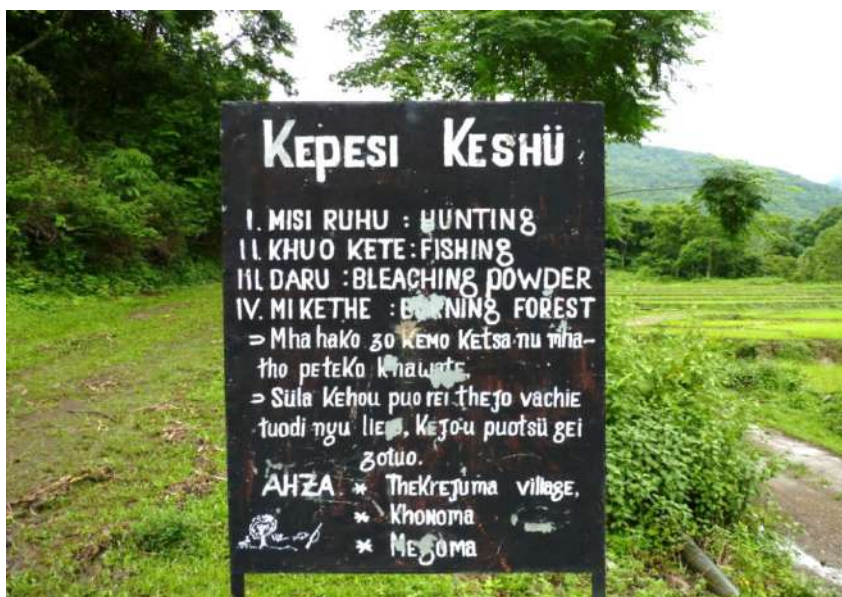 KEPESI KESHÜ
I. MISI RUHU : HUNTING
II. KHUO KETE : FISHING
III. DARU : BLEACHING POWDER
IV. MIKETHE : BURNING FOREST
⇒ Mha hako zo kemo ketsa nu mha-
tho peteko khawate,
⇒ Süla Kehou puo rei thejo vachie
tuodi nyu Kejo-u puotsü gei
zotuo.
AHZA * TheKrejuma village,
* Khonoma
* Mezoma